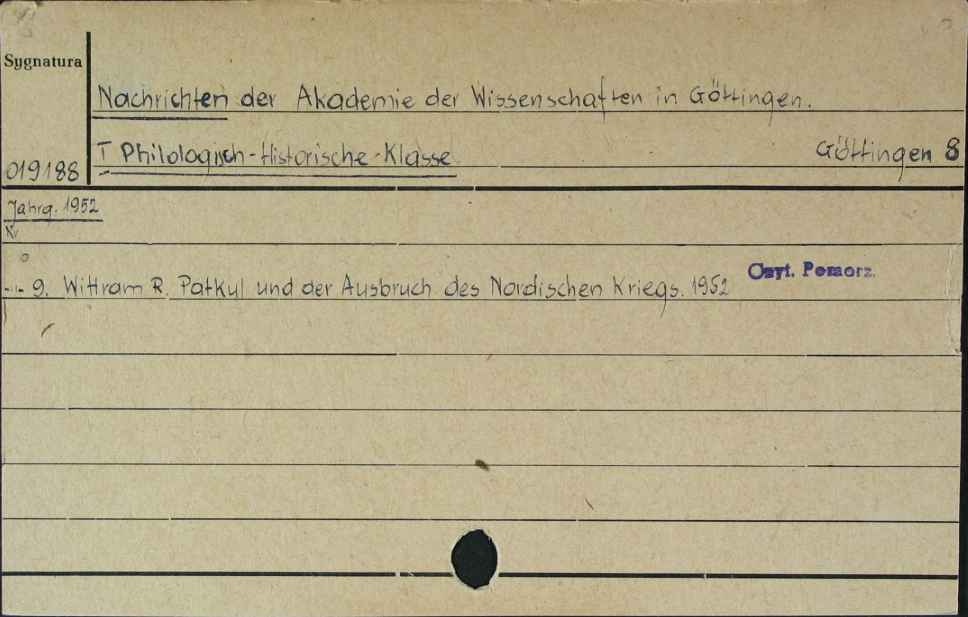 Sygnatura
Nachrichten der Akademie der Wissenschaften in Göttingen.
I Philologisch-Historische-Klasse Göttingen 8
019188
Jahrg. 1952
-"- 9. Wittram R. Patkul und der Ausbruch des Nordischen Kriegs. 1952 Czyt. Pomorz.